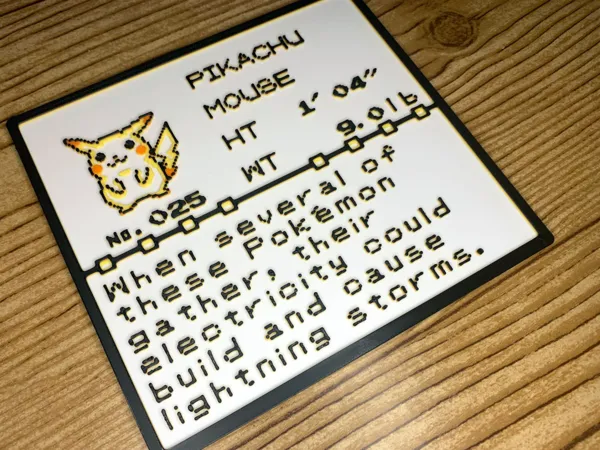 PIKACHU
MOUSE
HT 1' 04"
WT 9.0lb
No. 025
When several of
these Pokémon
gather, their
electricity could
build and cause
lightning storms.